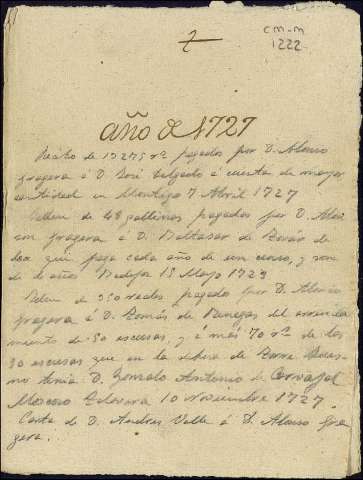 2
CM-M
1222
año de 1727
Recibo de 13275 rs pagados por D. Alonso
Fragera á D. José Salgado á cuenta de mayor
cantidad en Montijo 7 Abril 1727
de 48 gallinas pagados por D. Alon
so Fragera á D. Baltasar de
que paga cada año de un censo, y son
de 6 años Mayo 1723
de 550 reales pagados por D. Alonso
Fragera á D. Tomás de Vanegas del arrenda
miento de 50 escusas, y á más 70 rs de las
20 escusas que en la de Torre
mo tenia D. Gonzalo Antonio de Carvajal
Moscoso 10 Noviembre 1727.
Carta de D. Andres Valle á D. Alonso Fra
gera.